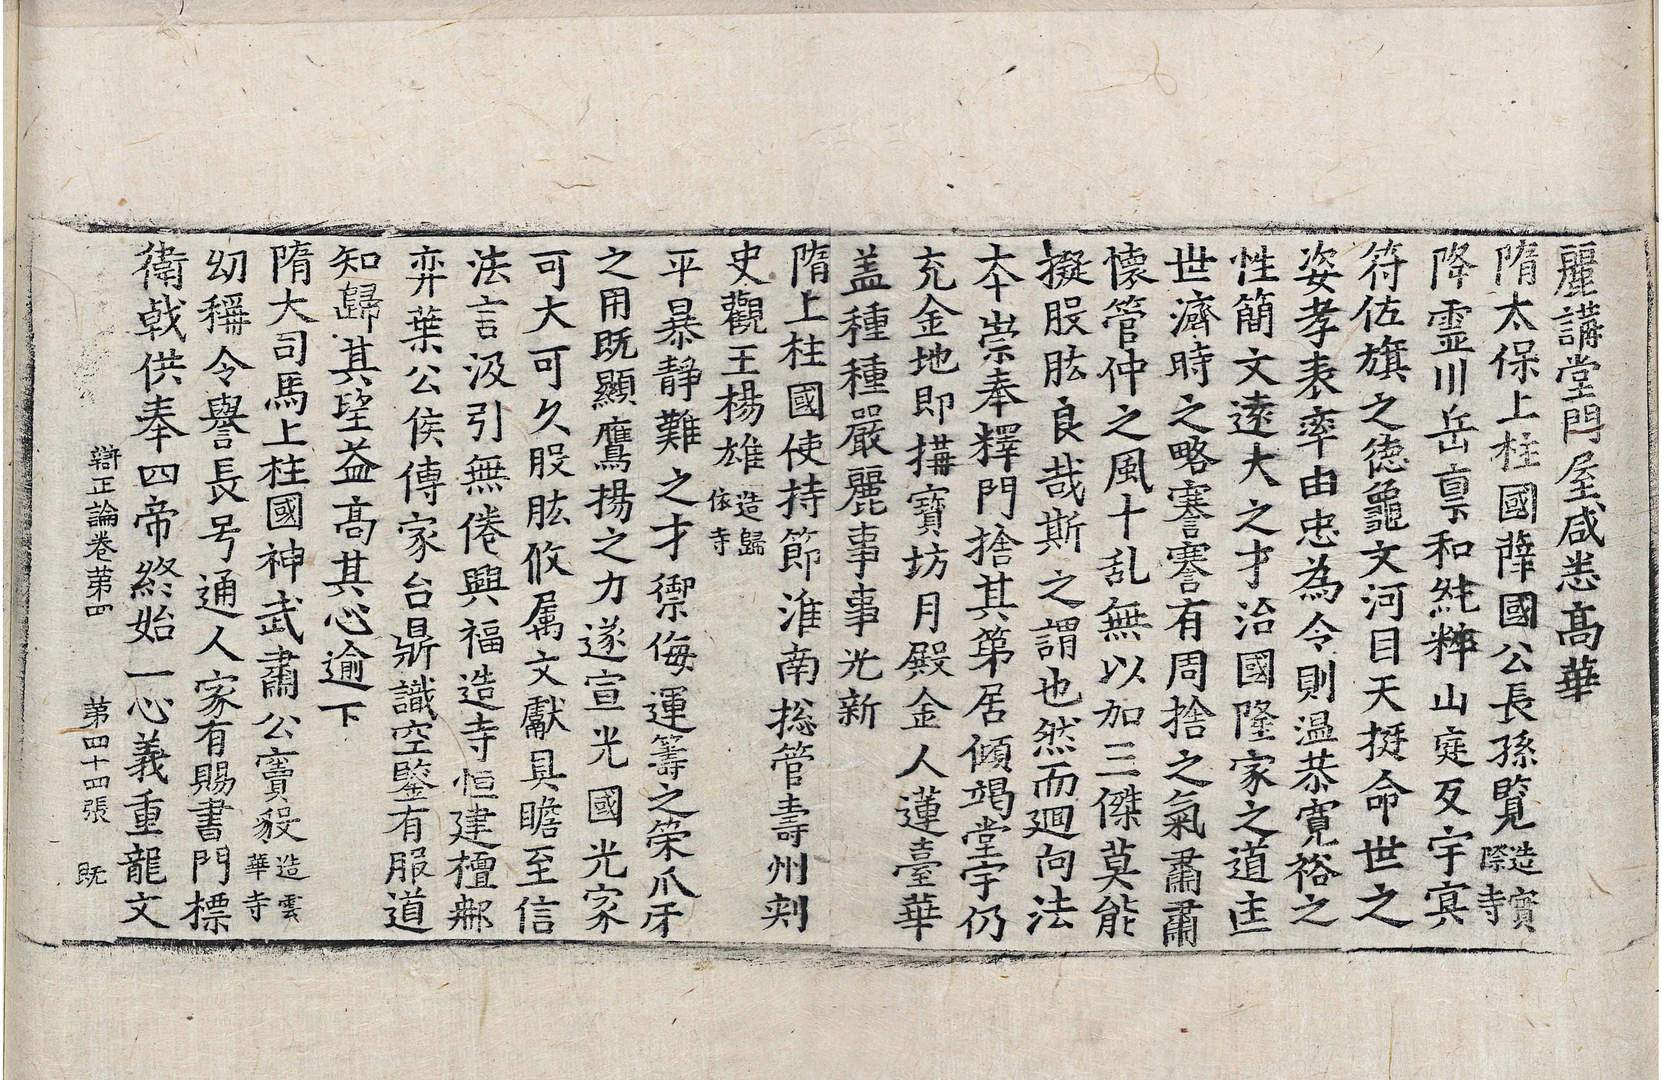 麗講堂門屋咸悉髙華
隋太保上柱國薩國公長孫覽造寶際寺
降霊川岳禀和純粹山㝎叐宇㝠
符佐旗之徳龜文河目天挺命世之
姿孝表率由忠為令則温恭寛裕之
性簡文逺大之才治國隆家之道匡
世濟時之略謇謇有周捨之氣肅肅
懐管仲之風十乱無以加三傑莫能
擬股肱良哉斯之謂也然而迴向法
夲崇奉釋門捨其第居傾竭堂宇仍
充金地即搆寳坊月殿金人蓮臺華
盖種種嚴麗事事光新
隋上柱國使持節淮南捴管壽州刺
史觀王楊雄造歸依寺
平暴静難之才禦侮運籌之荣爪牙
之用既顯鷹揚之力遂宣光國光家
可大可久股肱攸属文獻具瞻至信
法言汲引無倦興福造寺恒建檀郍
弈葉公侯傳家台鼎識空鑒有服道
知歸其望益髙其心逾下
隋大司馬上柱國神武肅公竇毅造雲華寺
幼稱令譽長号通人家有賜書門標
衛戟供奉四帝終始一心義重龍文
辯正論巻苐四 第四十四張 既